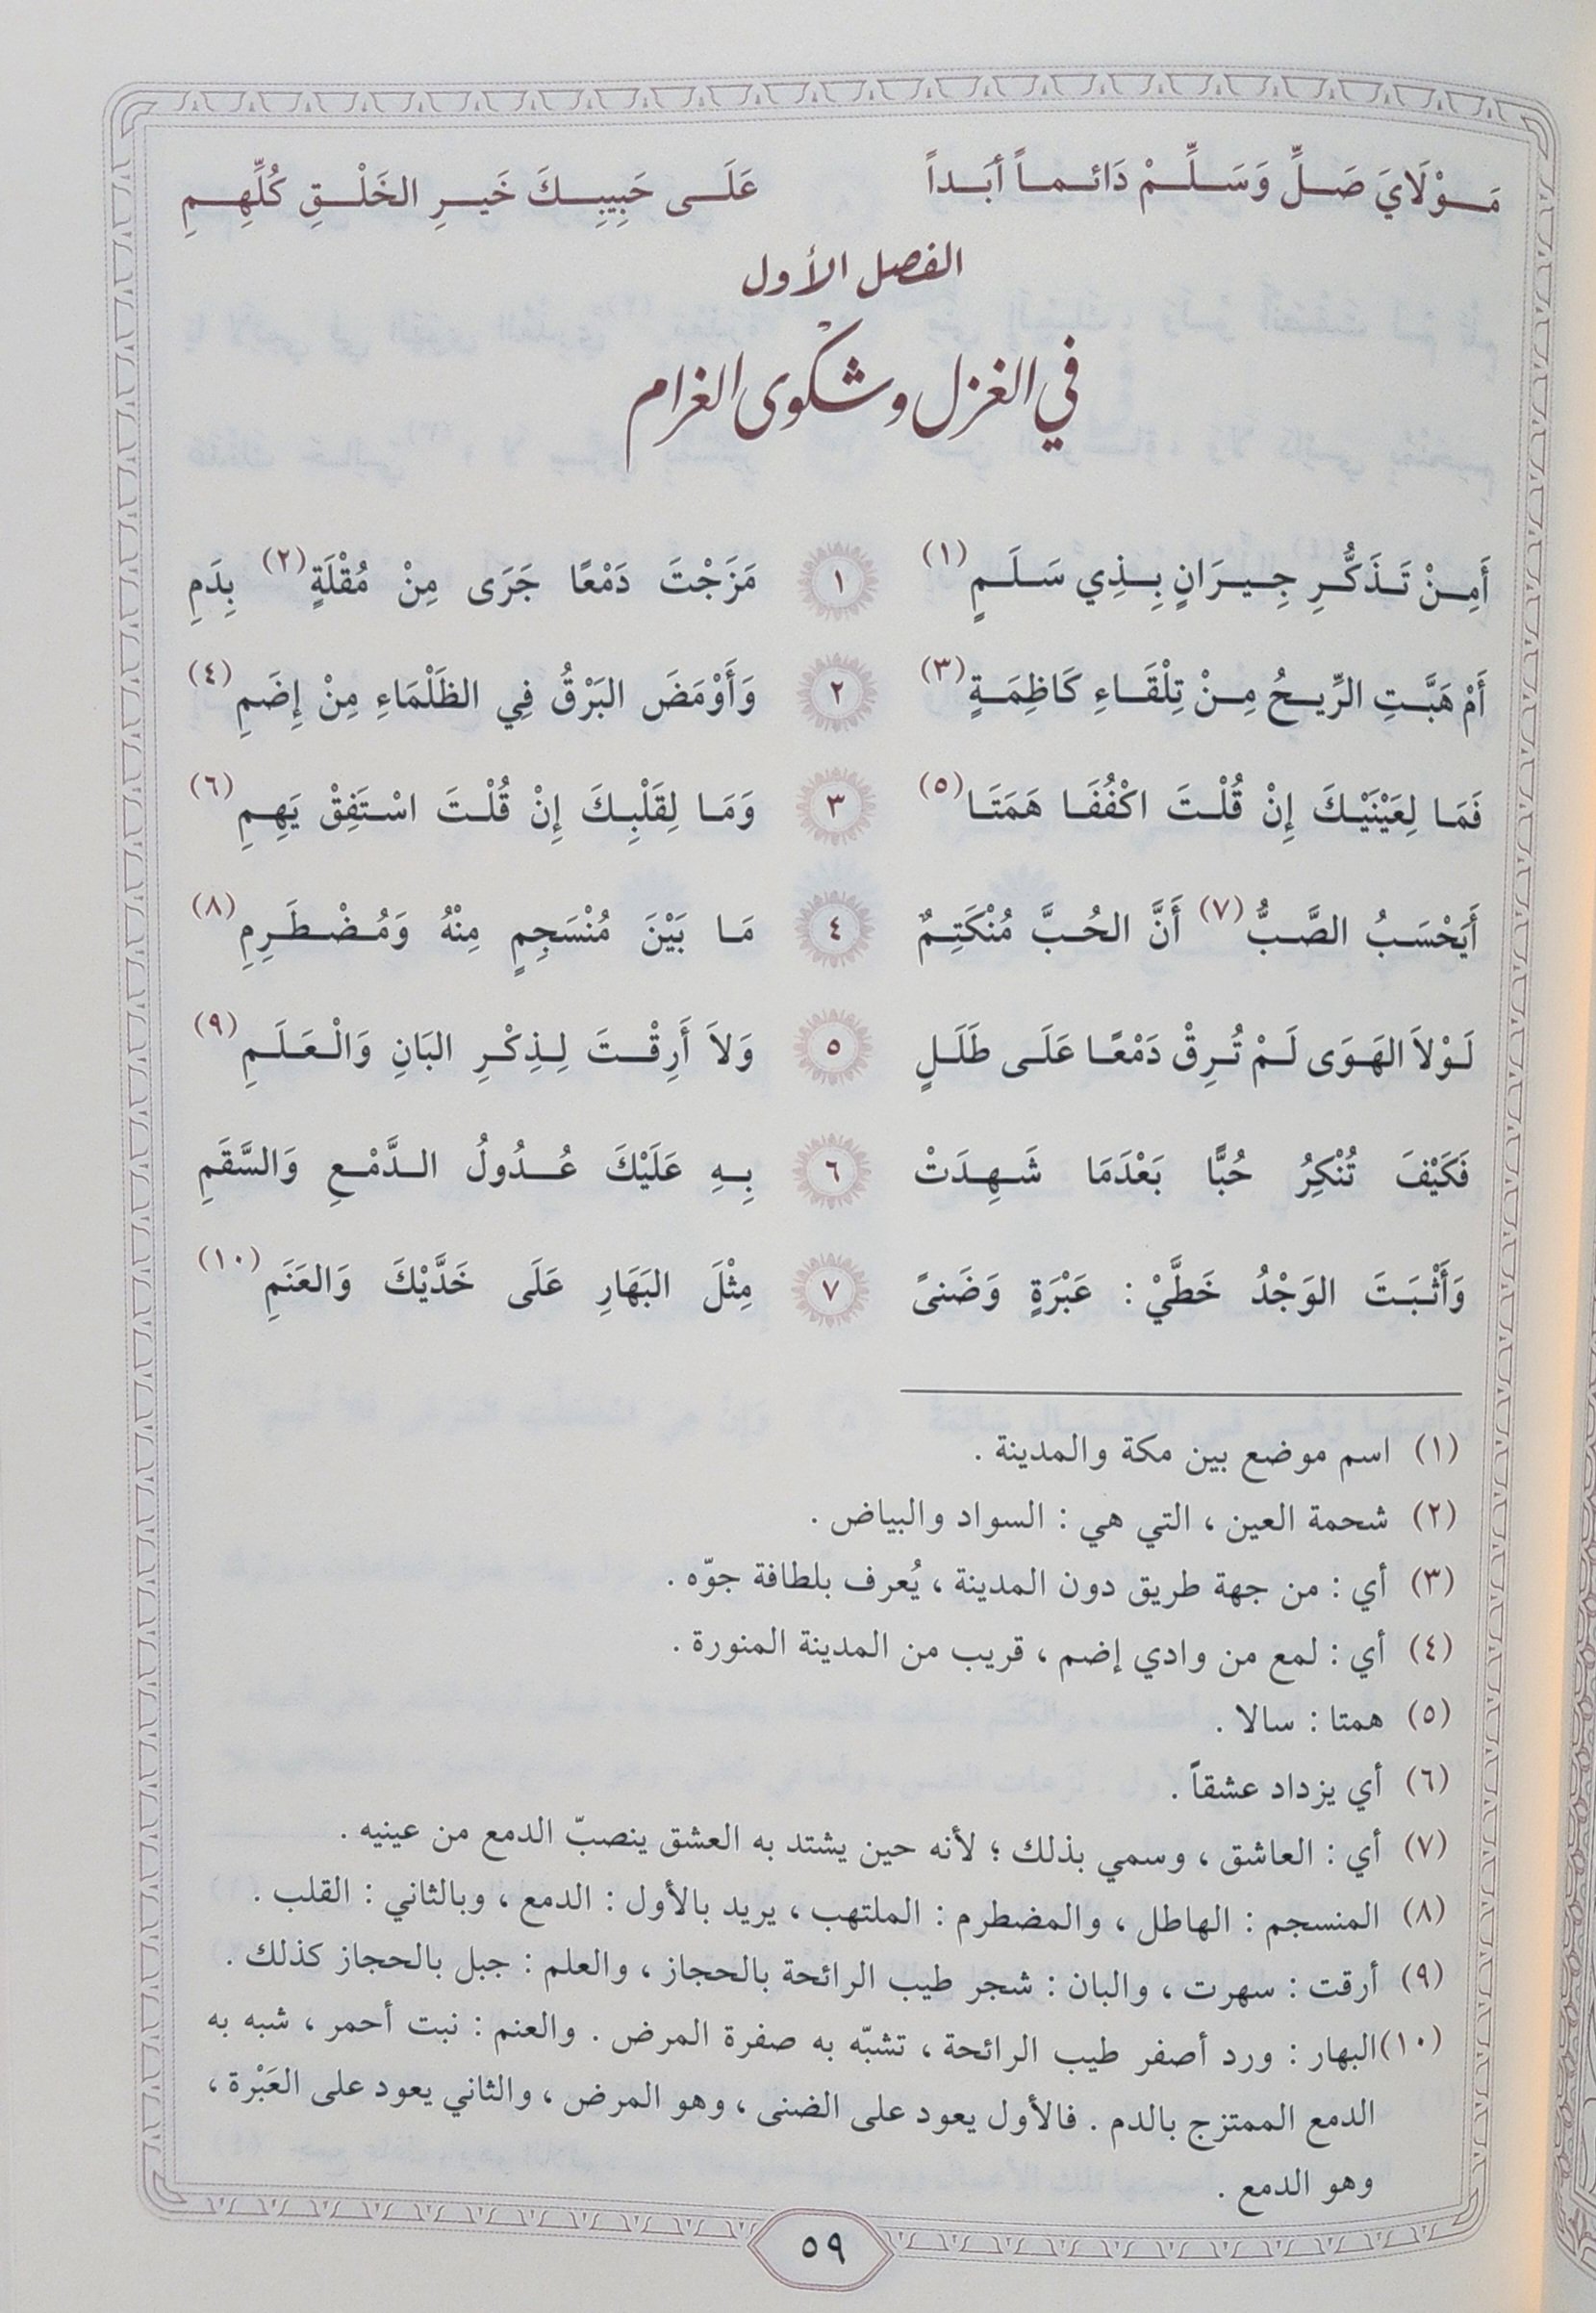 مَوْلَايَ صَلِّ وَسَلِّمْ دَائماً أَبَداً عَلَى حَبِيبِكَ خَيرِ الخَلْقِ كُلِّهِمِ
الفصل الأول
في الغزل وشكوى الغرام
أَمِنْ تَذَكُّرِ جِيرَانٍ بِذِي سَلَمٍ(١) ١ مَزَجْتَ دَمْعًا جَرَى مِنْ مُقْلَةٍ(٢) بِدَمِ
أَمْ هَبَّتِ الرِّيحُ مِنْ تِلْقَاءِ كَاظِمَةٍ(٣) ٢ وَأَوْمَضَ البَرْقُ فِي الظَلْمَاءِ مِنْ إِضَمِ(٤)
فَمَا لِعَيْنَيْكَ إِنْ قُلْتَ اكْفُفَا هَمَتَا(٥) ٣ وَمَا لِقَلْبِكَ إِنْ قُلْتَ اسْتَفِقْ يَهِمِ(٦)
أَيَحْسَبُ الصَّبُّ(٧) أَنَّ الحُبَّ مُنْكَتِمٌ ٤ مَا بَيْنَ مُنْسَجِمٍ مِنْهُ وَمُضْطَرِمِ(٨)
لَوْلاَ الهَوَى لَمْ تُرِقْ دَمْعًا عَلَى طَلَلٍ ٥ وَلاَ أَرِقْتَ لِذِكْرِ البَانِ وَالْعَلَمِ(٩)
فَكَيْفَ تُنْكِرُ حُبًّا بَعْدَمَا شَهِدَتْ ٦ بِهِ عَلَيْكَ عُدُولُ الدَّمْعِ وَالسَّقَمِ
وَأَثْبَتَ الوَجْدُ خَطَّيْ : عَبْرَةٍ وَضَنىً ٧ مِثْلَ البَهَارِ عَلَى خَدَّيْكَ وَالعَنَمِ(١٠)
(١) اسم موضع بين مكة والمدينة .
(٢) شحمة العين ، التي هي : السواد والبياض .
(٣) أي : من جهة طريق دون المدينة ، يُعرف بلطافة جوّه .
(٤) أي : لمع من وادي إضم ، قريب من المدينة المنورة .
(٥) همتا : سالا .
(٦) أي يزداد عشقاً .
(٧) أي : العاشق ، وسمي بذلك ؛ لأنه حين يشتد به العشق ينصبّ الدمع من عينيه .
(٨) المنسجم : الهاطل ، والمضطرم : الملتهب ، يريد بالأول : الدمع ، وبالثاني : القلب .
(٩) أرقت : سهرت ، والبان : شجر طيب الرائحة بالحجاز ، والعلم : جبل بالحجاز كذلك .
(١٠) البهار : ورد أصفر طيب الرائحة ، تشبّه به صفرة المرض . والعنم : نبت أحمر ، شبه به
الدمع الممتزج بالدم . فالأول يعود على الضنى ، وهو المرض ، والثاني يعود على العَبْرة ،
وهو الدمع .
٥٩